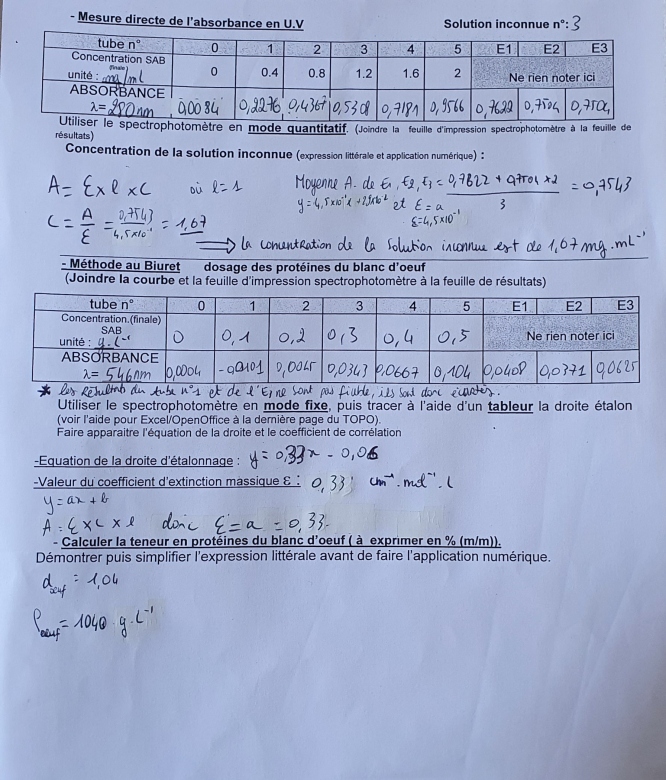 - Mesure directe de l'absorbance en U.V Solution inconnue n°: 3
tube n° 0 1 2 3 4 5 E1 E2 E3
Concentration SAB (finale) unité : mg/ml 0 0.4 0.8 1.2 1.6 2 Ne rien noter ici
ABSORBANCE λ= 280nm 0,0084 0,2276 0,4367 0,5308 0,7181 0,9566 0,7622 0,7504 0,7504
Utiliser le spectrophotomètre en mode quantitatif. (Joindre la feuille d'impression spectrophotomètre à la feuille de
résultats)
Concentration de la solution inconnue (expression littérale et application numérique) :
A= Ɛ x l x C où l = 1 Moyenne A. de E1, E2, E3 = 0,7622 + 0,7504 x 2 / 3 = 0,7543
et Ɛ = a
Ɛ=4,5x10⁻¹
C = A/Ɛ = 0,7543 / 4,5x10⁻¹ = 1,67
⟹ la concentration de la solution inconnue est de 1,67 mg.mL⁻¹
- Méthode au Biuret dosage des protéines du blanc d'oeuf
(Joindre la courbe et la feuille d'impression spectrophotomètre à la feuille de résultats)
tube n° 0 1 2 3 4 5 E1 E2 E3
Concentration.(finale) SAB unité : g.L⁻¹ 0 0,1 0,2 0,3 0,4 0,5 Ne rien noter ici
ABSORBANCE λ= 546nm 0,0004 -0,0101 0,0045 0,0343 0,0667 0,104 0,0408 0,0371 0,0625
* les résultats du tube n°1 et de l'E3 ne sont pas fiable, ils sont donc écartés.
Utiliser le spectrophotomètre en mode fixe, puis tracer à l'aide d'un tableur la droite étalon
(voir l'aide pour Excel/OpenOffice à la dernière page du TOPO).
Faire apparaitre l'équation de la droite et le coefficient de corrélation
-Equation de la droite d'étalonnage : y = 0,33x - 0,06
-Valeur du coefficient d'extinction massique Ɛ : 0,33 cm⁻¹.mol⁻¹.L
y = ax + b
A = Ɛ x C x l donc Ɛ = a = 0,33.
- Calculer la teneur en protéines du blanc d'oeuf ( à exprimer en % (m/m)).
Démontrer puis simplifier l'expression littérale avant de faire l'application numérique.
d oeuf = 1,04
ρ oeuf = 1040 g.L⁻¹